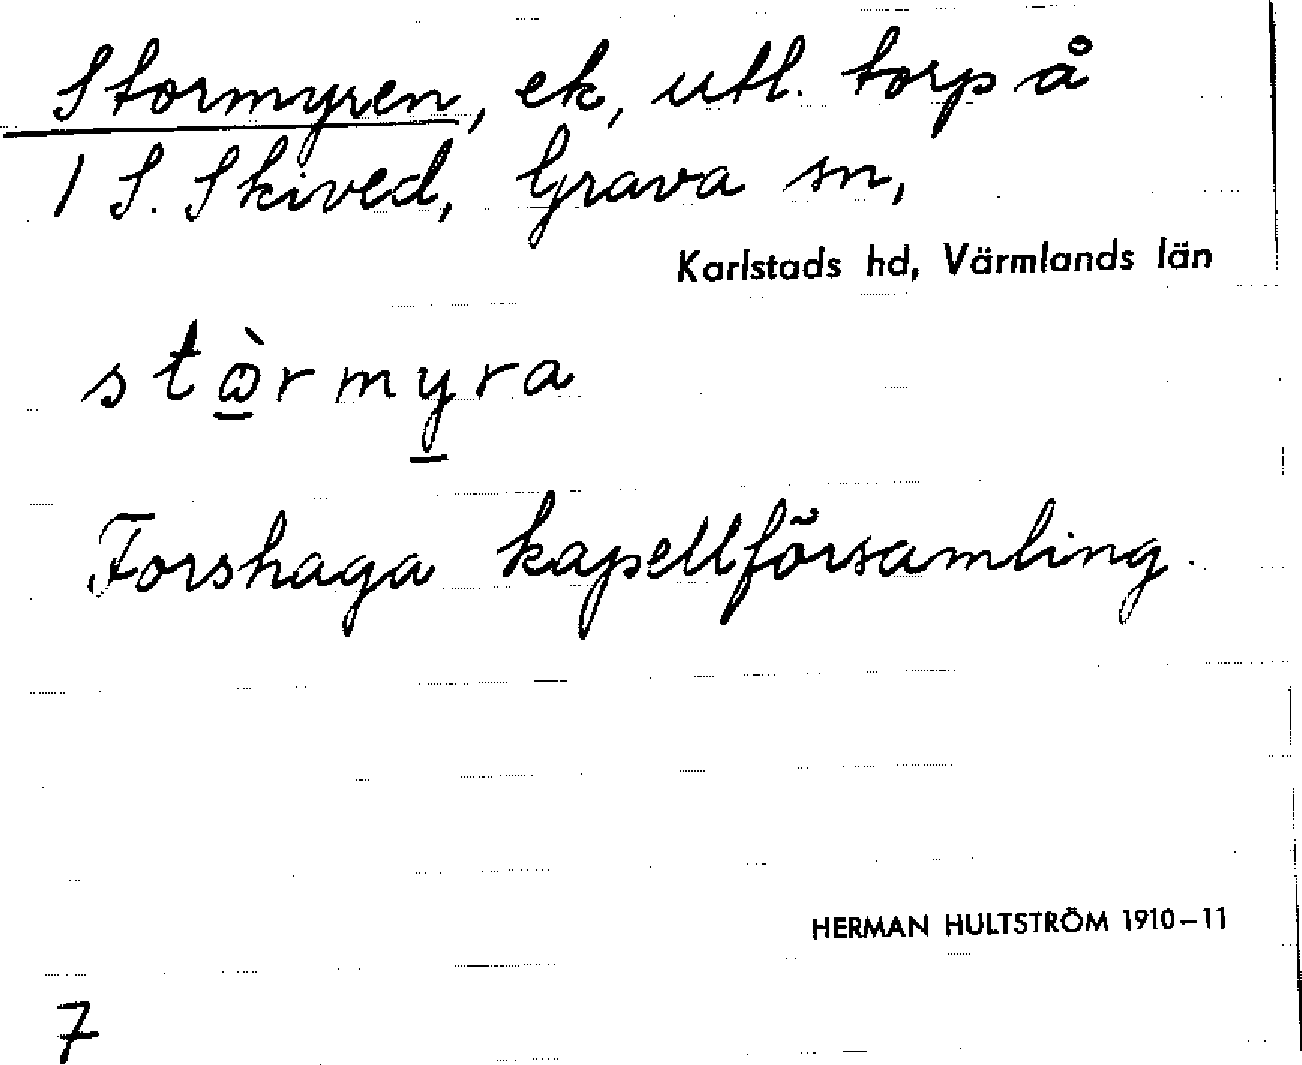 Stormyren, ek, utl. torp å
1 S. Skived, Grava sn,
Karlstads hd, Värmlands län
stὼ̲rmy̲ra
Forshaga kapellförsamling.
HERMAN HULTSTRÖM 1910–11
7